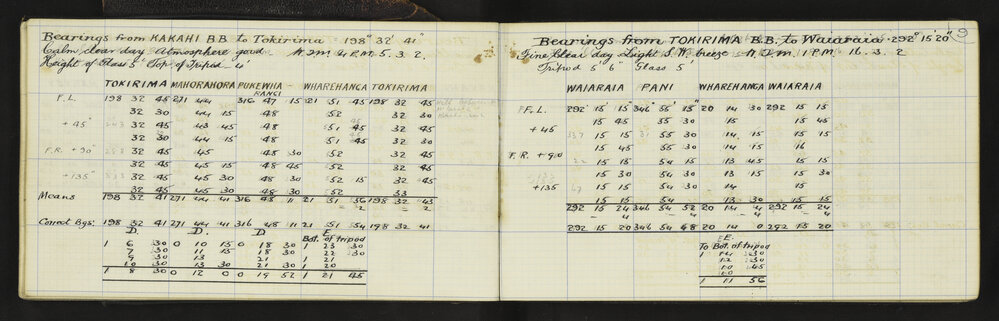 Bearings from KAKAHI B.B to Tokirima - 198° 32' 41"
Calm, clear day Atmosphere good 4 P.M. 5. 3. 2.
Height of Glass 5' Top of Tripod - 4'
TOKIRIMA MAHORAHORA PUKEWHARANGI WHAREHANGA TOKIRIMA
F.L. 198 32 45 271 44 316 47 15 21 51 45 198 32 45
32 30 44 15 48 52 32 30
+45° 32 45 43 45 48 51 45 32 45
32 30 44 15 48 51 45 32 30
F.R. +90° 32 45 45 48 30 52 32 45
32 45 45 15 48 45 52 32 45
+135° 32 45 45 30 48 30 52 15 32 45
32 45 45 30 48 30 52 33
Means 198 32 41 271 44 41 316 48 11 21 51 56 198 32 43
- 2 - 2
Correct Bgs. 198 32 41 271 44 41 316 48 11 21 51 54 198 32 41
D. D. D E
Bot. of tripod
1 6 30 0 10 15 0 18 30 1 23 30
7 30 11 15 18 30 22 30
9 30 13 21 1 21
10 30 13 30 21 30 1 20
1 8 30 0 12 0 0 19 52 1 21 45
9
Bearings from TOKIRIMA B.B. to Waiaraia - 292° 15' 20"
Fine clear day Light S.W. breeze 1 P.M. 16. 3. 2
Tripod 5' 6" Glass 5'
WAIARAIA PANI WHAREHANGA WAIARAIA
F.L. 292 15 15 346° 55' 15" 20 14 30 292 15 15
15 45 55 30 15 15 45
+45 15 15 55 30 14 15 15 15
15 45 55 30 14 15 16
F.R. +90 15 15 54 15 13 45 15 15
15 30 54 30 13 15 15 30
+135 15 15 54 30 14 15
15 15 54 13 30 15 15
292 15 24 346 54 52 20 14 4 292 15 24
- 4 - 4 - 4 - 4
292 15 20 346 54 48 20 14 0 292 15 20
E.
To Bot. of tripod
1 14 30
12 30
10 45
10
1 11 56